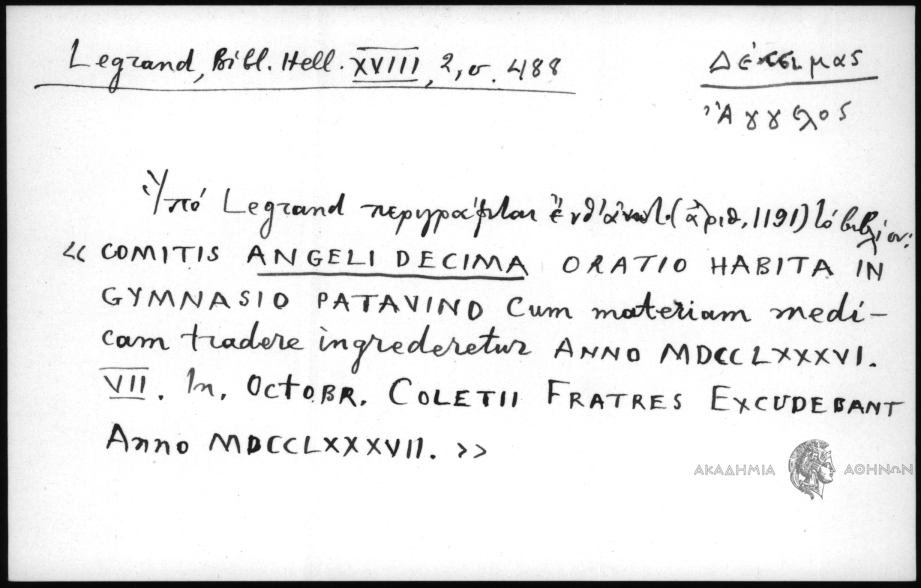 Legrand, Bibl. Hell. XVIII, 2, σ. 488
Δέκιμας
Ἄγγελος
Ὑπό Legrand περιγράφεται ἐνθ' ἀνωτ. (ἀριθ. 1191) τό βιβλίον:
«COMITIS ANGELI DECIMA ORATIO HABITA IN
GYMNASIO PATAVINO Cum materiam medi-
cam tradere ingrederetur ANNO MDCCLXXXVI.
VII. In. OCTOBR. COLETII FRATRES EXCUDEBANT
Anno MDCCLXXXVII.»
ΑΚΑΔΗΜΙΑ ΑΘΗΝΩΝ